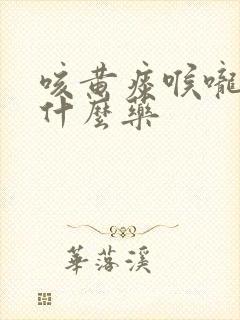 咳黄痰喉嚨
什麼藥
華落溪